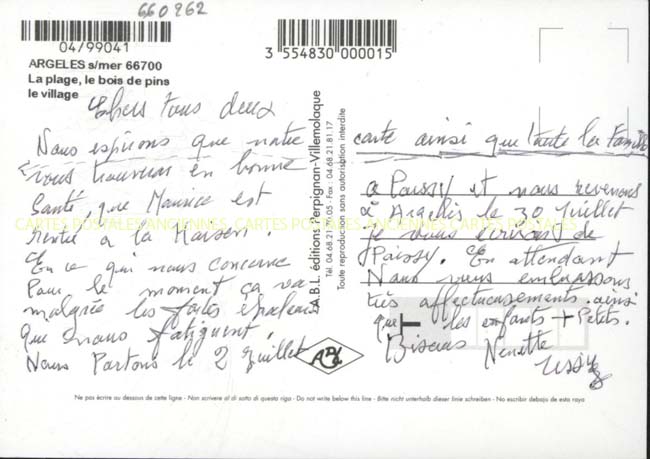 660262
04/99041
3 554830 000015
ARGELES s/mer 66700
La plage, le bois de pins
le village
Chers tous deux
Nous espérons que notre
carte ainsi que toute la Famille
vous trouveras en bonne
Santé, que Maurice est
rentré à la Maison,
En ce qui nous concerne
Pour le moment ça va
malgrée les fortes chaleurs
que nous fatiguent.
Nous Partons le 2 juillet
a Poissy et nous revenons
à Argelès le 30 juillet
je vous écrirai de
Poissy. En attendant
Nous vous embrassons
très affectueusement ainsi
que les enfants + Petits.
Biseus Nenette
A.B.L. éditions Perpignan-Villemolaque
Tél. 04.68.21.71.05 - Fax : 04.68.21.81.17
Toute reproduction sans autorisation interdite
CARTES POSTALES ANCIENNES, CARTES POSTALES ANCIENNES, CARTES POSTALES ANCIENNES
Ne pas écrire au dessous de cette ligne - Non scrivere al di sotto di questa riga - Do not write below this line - Bitte nicht unterhalb dieser linie schreiben - No escribir debajo de esta raya